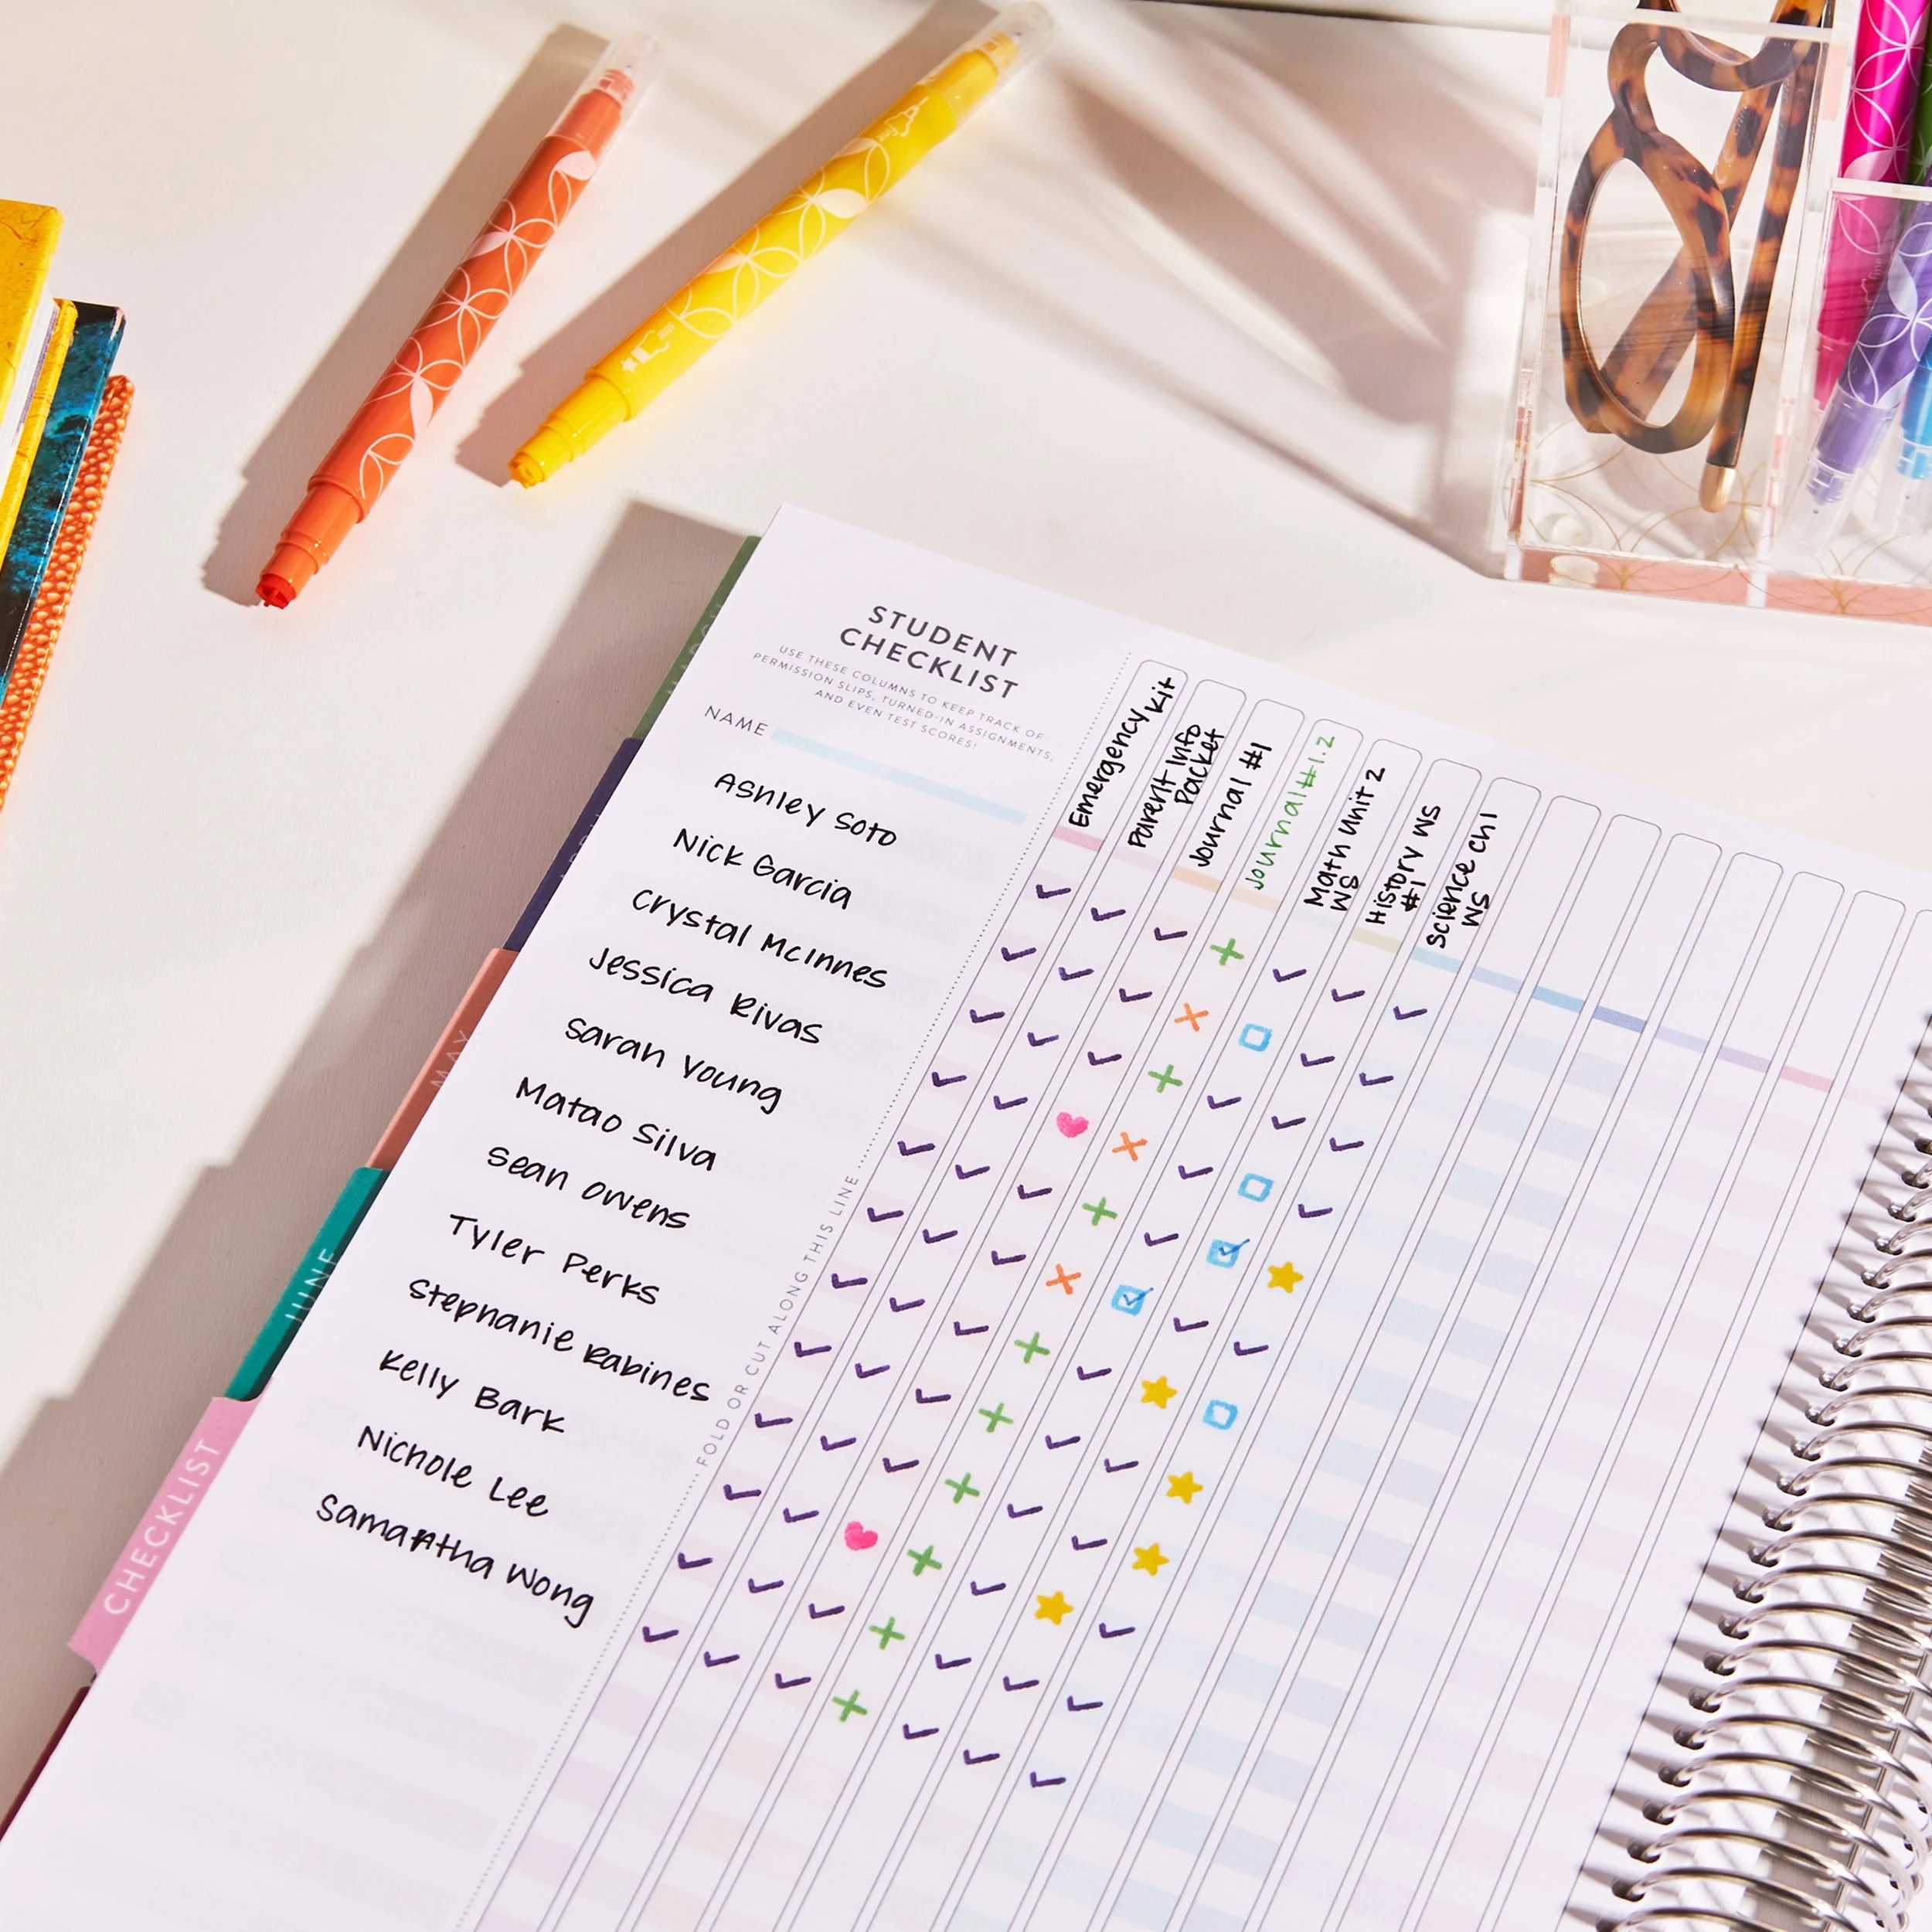 STUDENT
CHECKLIST
USE THESE COLUMNS TO KEEP TRACK OF
PERMISSION SLIPS, TURNED-IN ASSIGNMENTS,
AND EVEN TEST SCORES!
NAME
Emergency Kit
Parent Info
Packet
Journal #1
Journal #1.2
Math Unit 2
WS
History WS
#1
Science Ch 1
WS
Ashley Soto
Nick Garcia
Crystal McInnes
Jessica Rivas
Sarah Young
Matao Silva
Sean Owens
Tyler Perks
Stephanie Rabines
Kelly Bark
Nichole Lee
Samantha Wong
FOLD OR CUT ALONG THIS LINE
MAY
JUNE
CHECKLIST